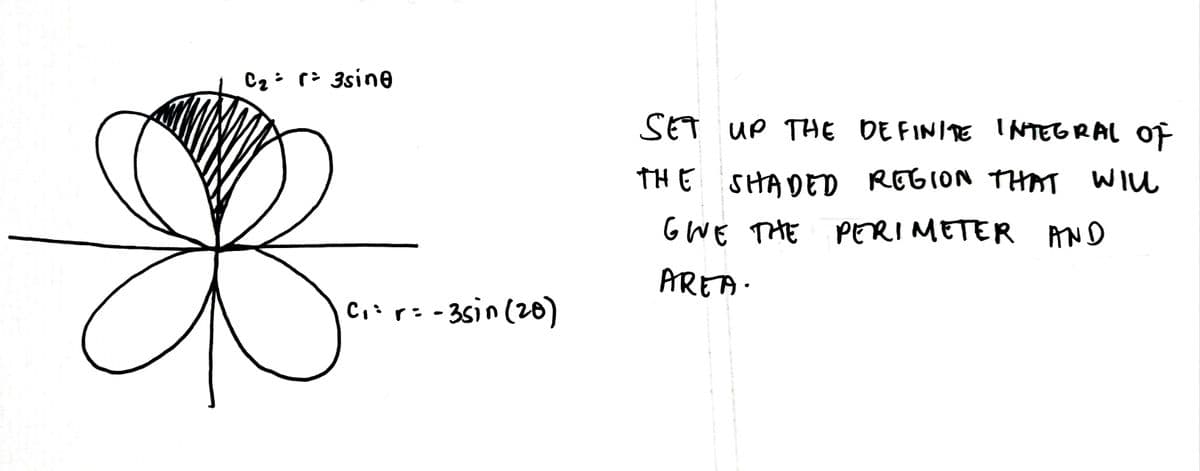 C₂: r = 3sinθ
SET UP THE DEFINITE INTEGRAL OF
THE SHADED REGION THAT WILL
GIVE THE PERIMETER AND
AREA.
C₁: r = -3sin(2θ)